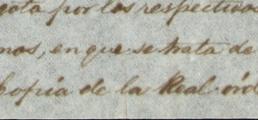 por los respectivos
en que se trata de
Copia de la Real